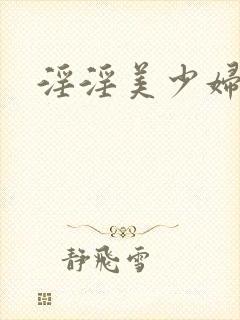 淫淫美少婦
静飛雪